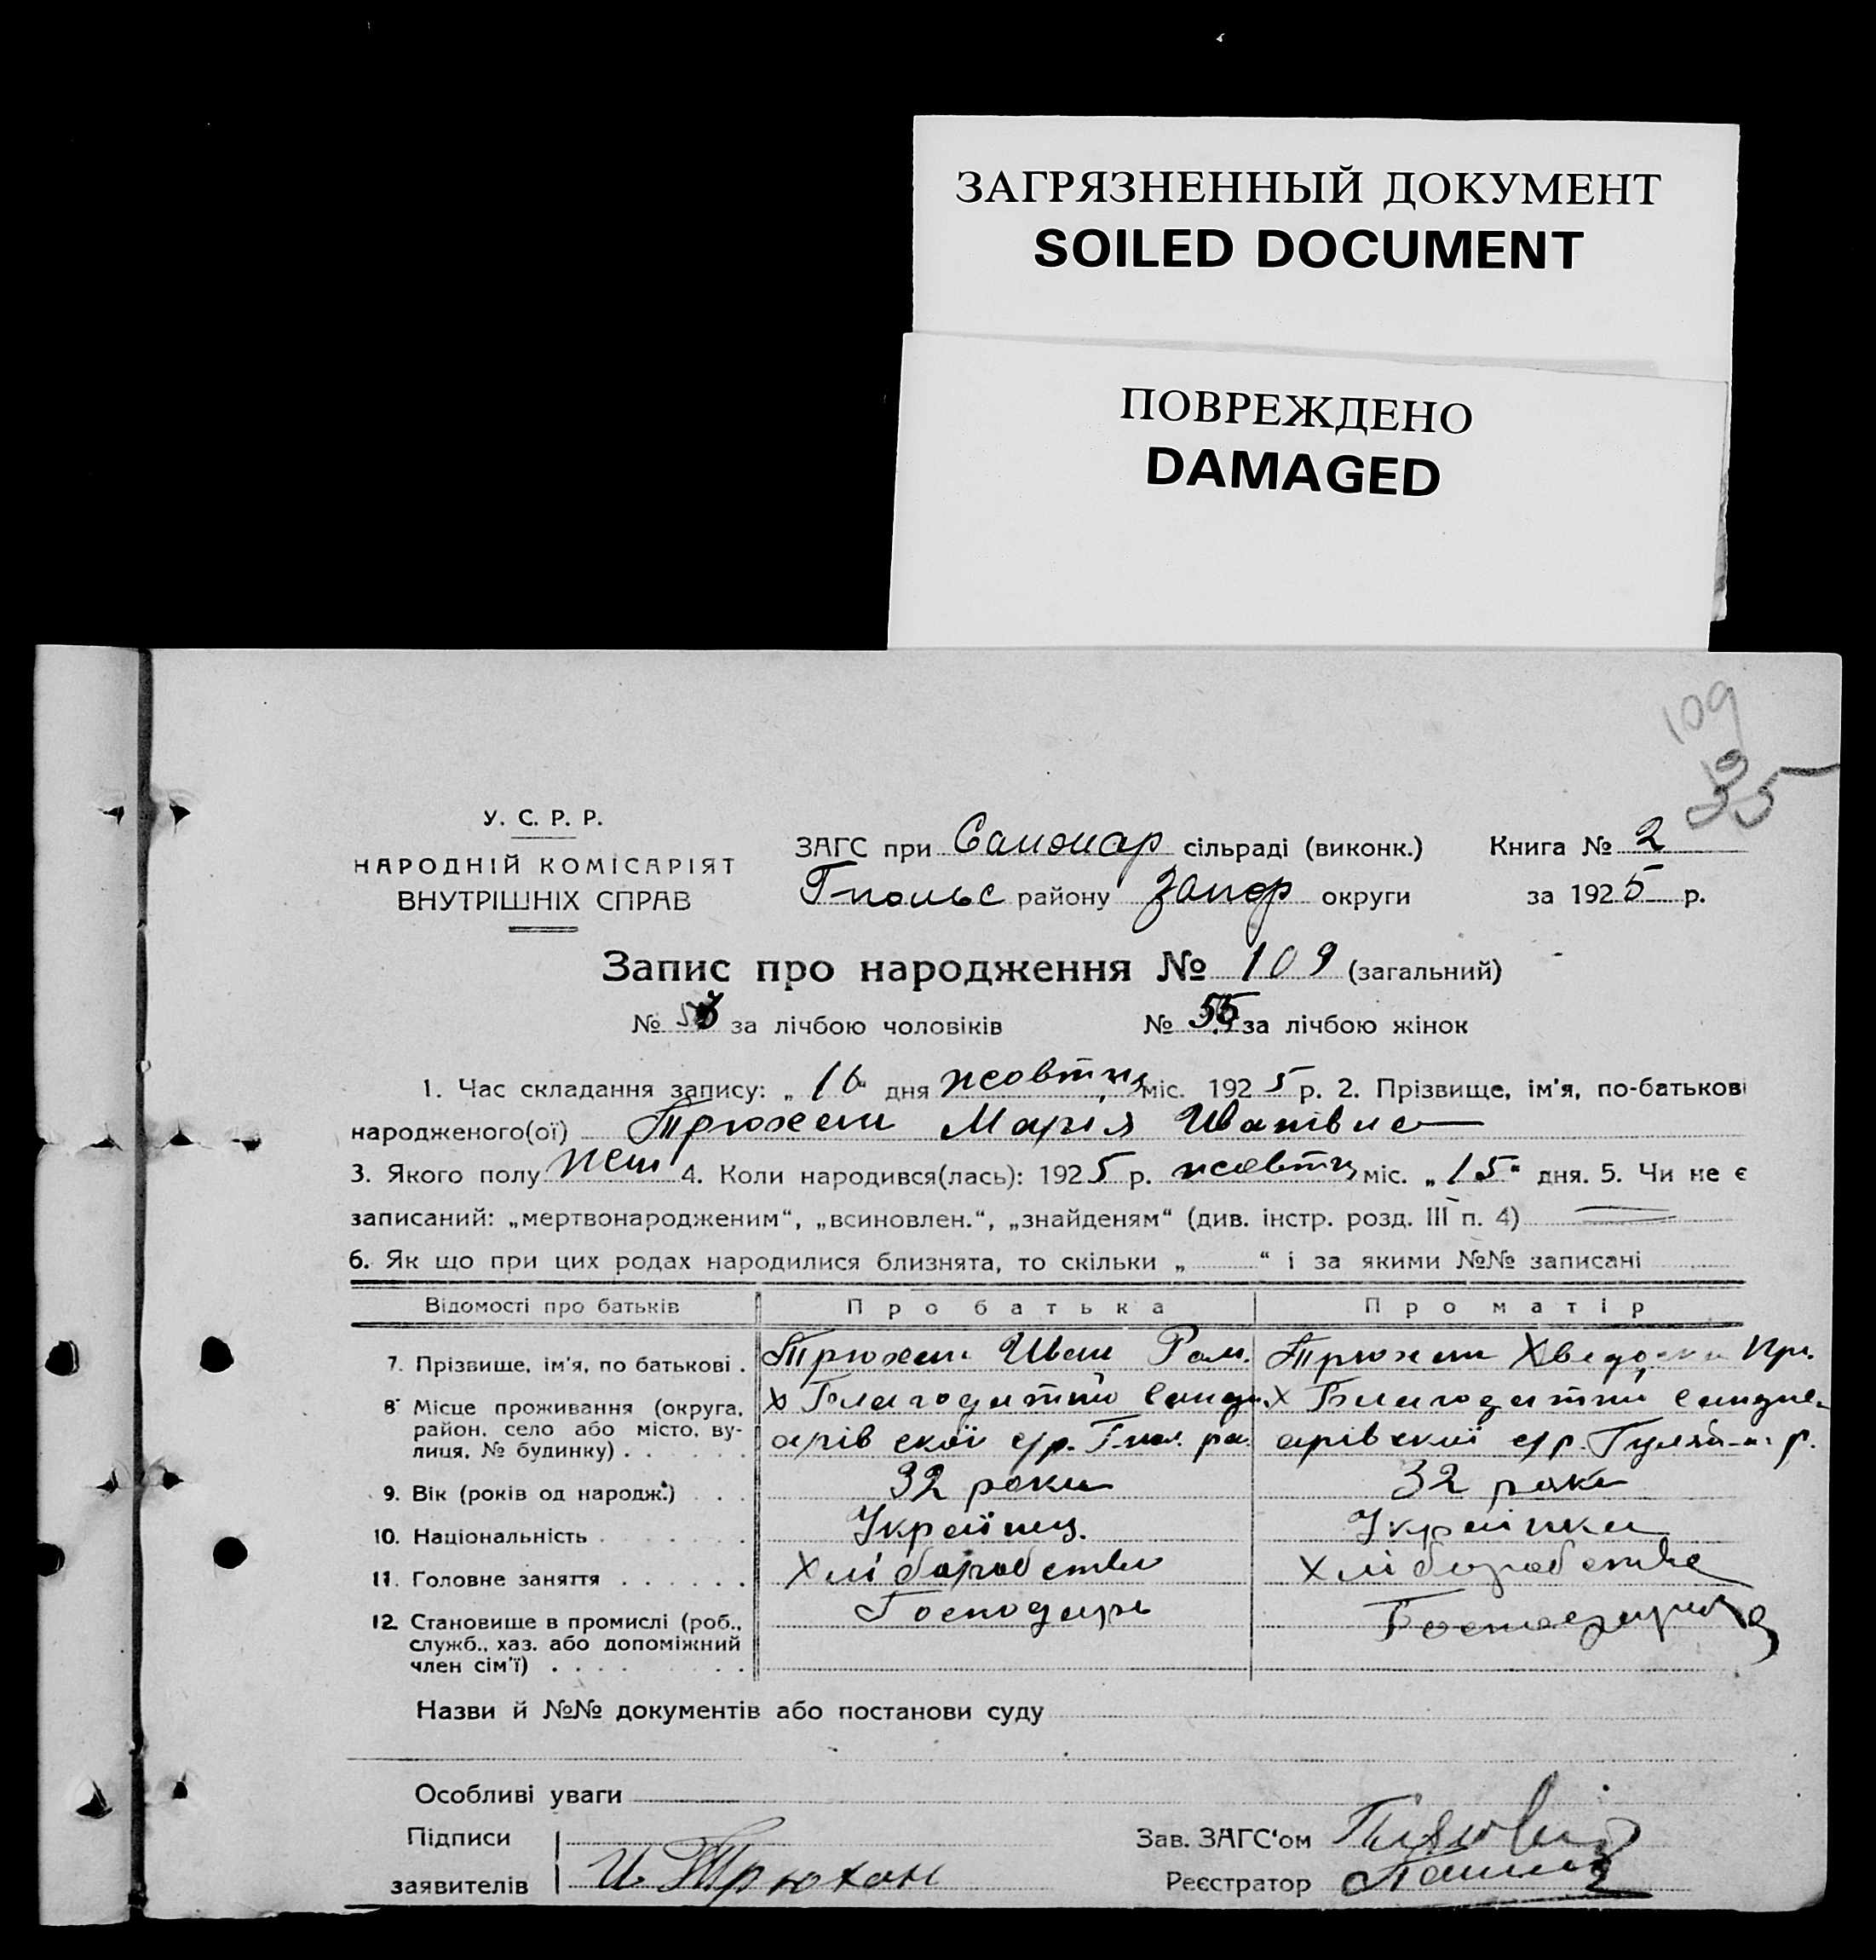 ЗАГРЯЗНЕННЫЙ ДОКУМЕНТ
SOILED DOCUMENT
ПОВРЕЖДЕНО
DAMAGED
109
35
У. С. Р. Р.
НАРОДНІЙ КОМІСАРІЯТ
ВНУТРІШНІХ СПРАВ
ЗАГС при сільраді (виконк.) Книга № 2
Гпольс району Запор округи за 1925 р.
Запис про народження № 109 (загальний)
№ за лічбою чоловіків № 55 за лічбою жінок
1. Час складання запису: „16“ дня жовтня міс. 1925 р. 2. Прізвище, ім'я, по-батькові
народженого(ої) Трюхан Марія Иванівна
3. Якого полу жен 4. Коли народився(лась): 1925 р. жовтн міс. „15“ дня. 5. Чи не є
записаний: „мертвонародженим“, „всиновлен.“, „знайденям“ (див. інстр. розд. III п. 4)
6. Як що при цих родах народилися близнята, то скільки „ “ і за якими №№ записані
Відомості про батьків Про батька Про матір
7. Прізвище, ім'я, по батькові . Трюхан Иван Ром. Трюхан Хведоска Пр.
8 Місце проживання (округа, х Благодатний х Благодатний
район, село або місто, ву- арівской с/р. Гпол. ра арівской с/р. Гуляй-п. р.
лиця, № будинку) . . . . .
9. Вік (років од народж.) . . . 32 роки 32 роки
10. Національність . . . . . . Українц. Українка
11. Головне заняття . . . . . . Хліборобство Хліборобство
12. Становище в промислі (роб., Господарь Господариня
служб., хаз. або допоміжний
член сім'ї) . . . . . . .
Назви й №№ документів або постанови суду
Особливі уваги
Підписи Зав. ЗАГС'ом
заявителів И Трюхан Реєстратор